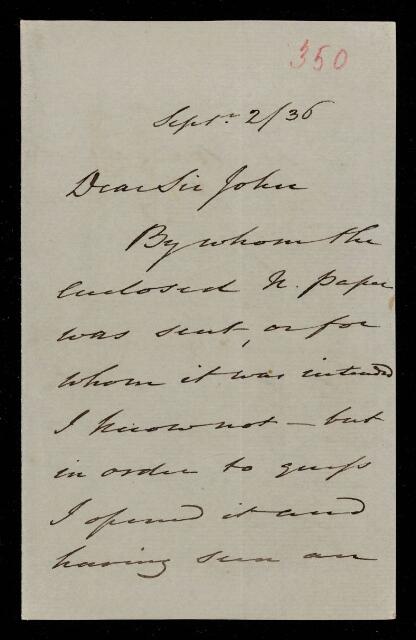 350
Septr 2/36
Dear Sir John
By whom the
enclosed N. paper
was sent, or for
whom it was intended
I know not - but
in order to guess
I opened it and
having seen an